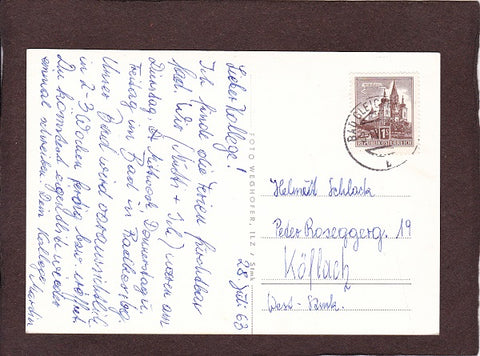 Lieber Kollege!
Ich finde die Ferien furchtbar
fad. Wir (Mutti + Ich) waren am
Dienstag, Mittwoch, Donnerstag u.
Freitag im Bad in Radkersburg.
Unser Bad wird voraussichtlich
in 2-3 Wochen fertig sein.
Du könntest eigentlich wieder
einmal schreiben Dein Kollege Martin
28. Juli 63
FOTO WEGHOFER, ILZ / Stmk.
BAD GLEICH
1S
REPUBLIK ÖSTERREICH
Helmut Schlack
Peter Roseggerg. 19
Köflach
West-Stmk.